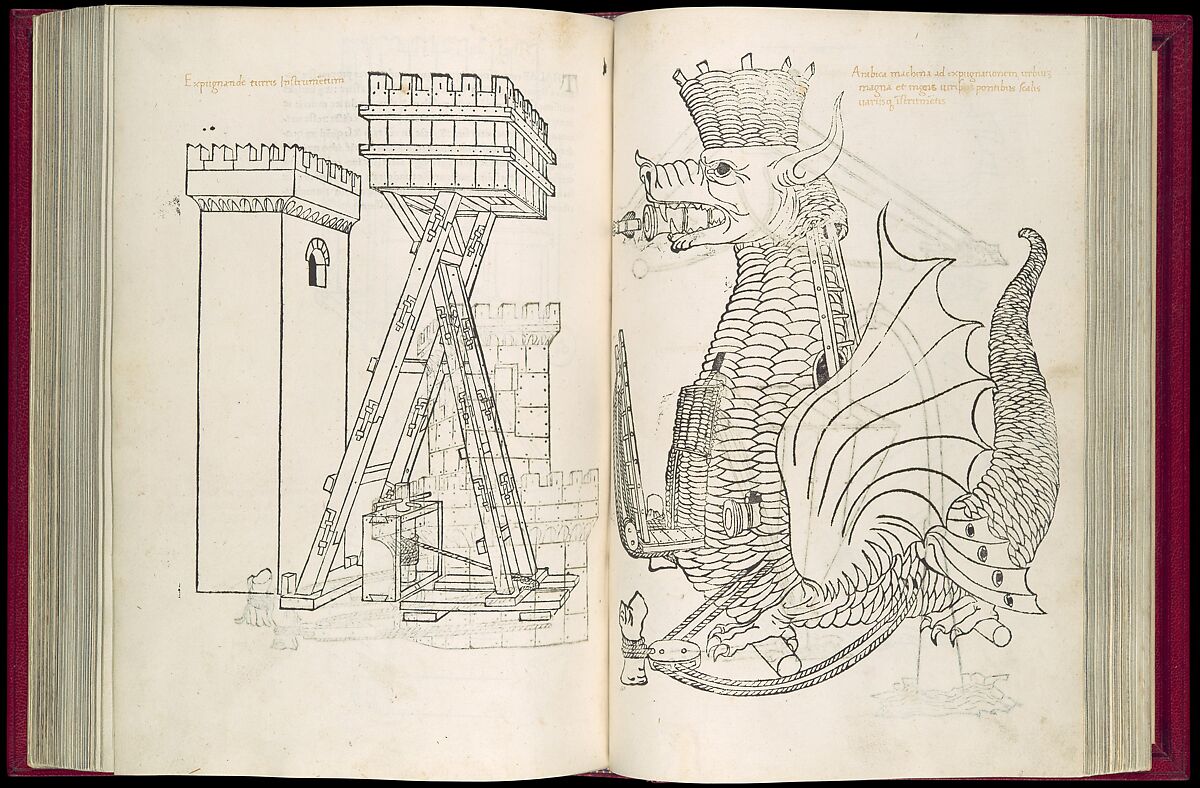 Expugnande turris Instrumētum
Arabica machina ad expugnationem urbius
magna et ingēs uiribus pontibus scalis
uariisq; īstrumētis